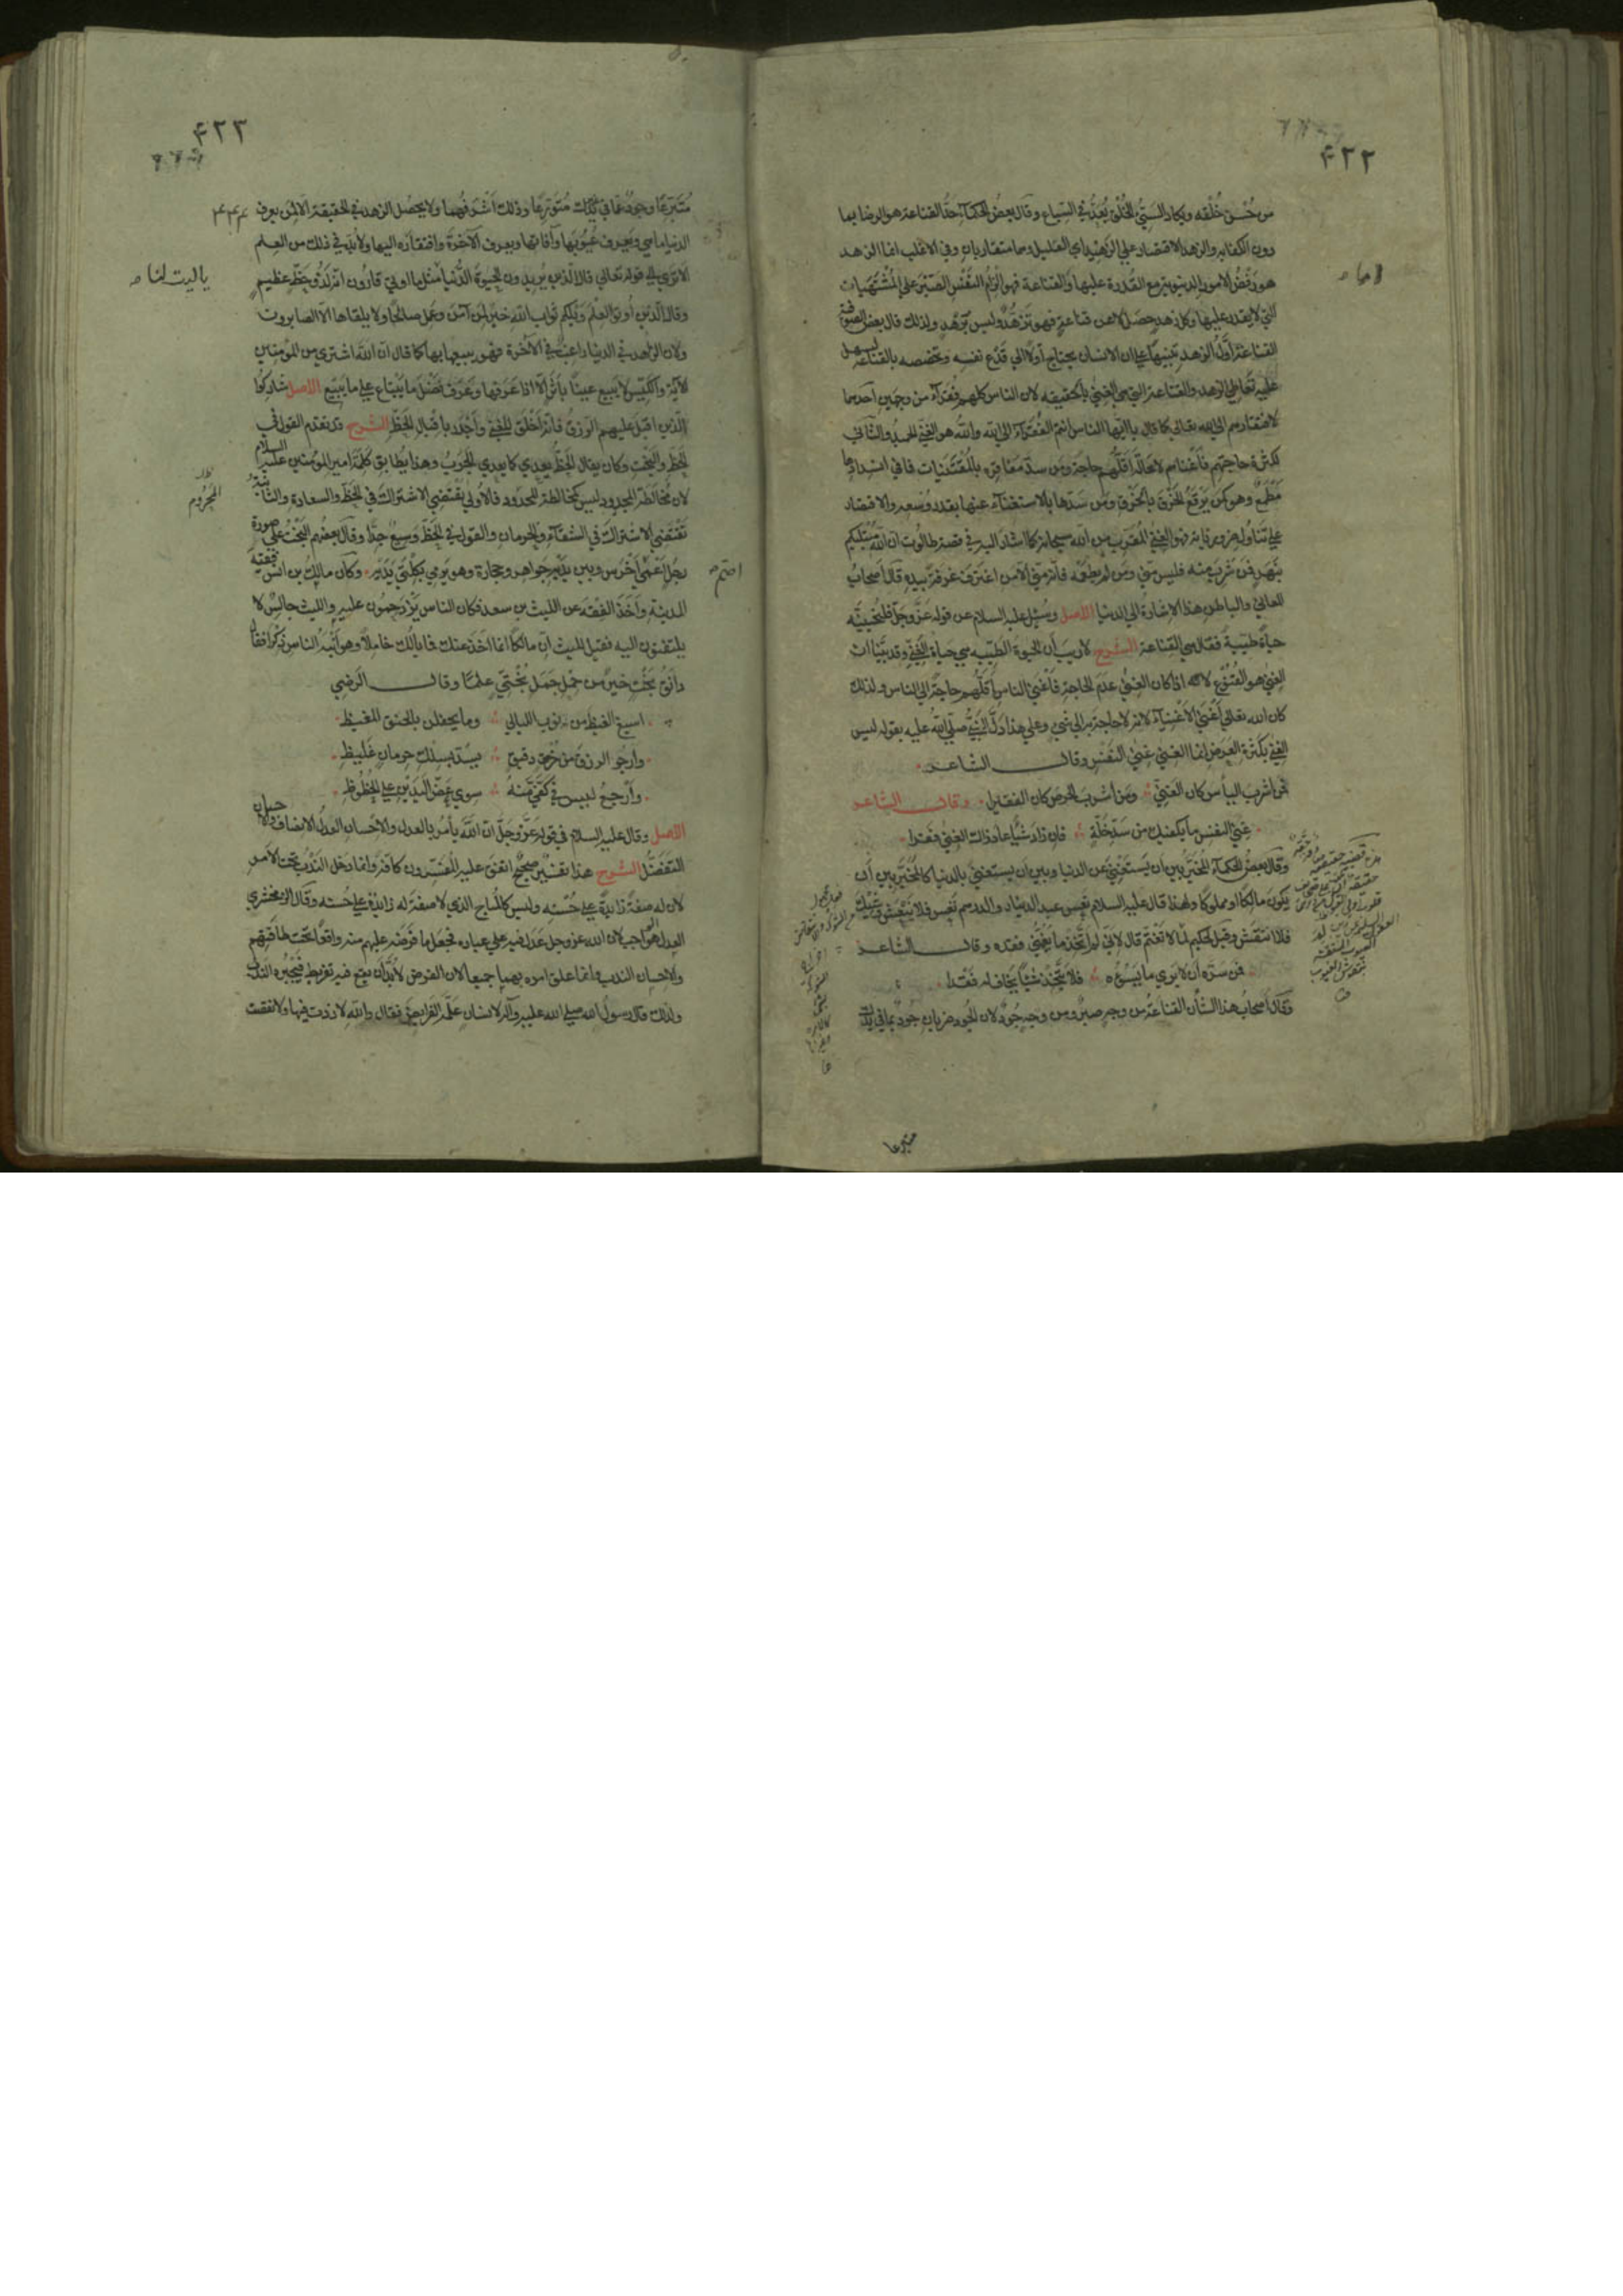 ۴۲۲
من حُسْن خُلْقه ويكاد السيّئ الخُلُق يُعَدُّ في السباع وقال بعضُ الحكمآء حدُّ القناعة هو الرضا بما
دون الكفاية والزهد الاقتصار على الزهيد اي القليل وهما متقاربان وفي الاغلب انما الزهد
هو رَفْضُ الامور الدنيوية مع القُدرة عليها والقناعة فهو اِلزامُ النَّفْس الصَّبْرَ على المُشْتَهَيات
التي لا يقدر عليها وكل زهدٍ حصَل لا عن قناعةٍ فهو تَزَهُّدٌ وليس بزُهدٍ ولذلك قال بعض الصوفية
القناعةُ اوّلُ الزهد تنبيهًا على ان الانسان يحتاج اوّلا الى قَدْع نفسه وتخصصه بالقناعة ليسهل
عليه تَعاطي الزهد والقناعة التي هي الغِنىٰ بالحقيقة لان الناس كلهم فُقَرآء من وجهين احدهما
لافتقارهم الى الله تعالى كما قال يا ايها الناس انتم الفقرآء الى الله والله هو الغني الحميد والثاني
لكثرة حاجتهم فأغْناهم لا محالة اَقلُّهم حاجة ومن سدّ مَفاقِرَه بالمُقْتَنَيات فما في انسدادها
مَطْمَعٌ وهو كمن يَرْقَعُ الخَرْقَ بالخَرْقِ ومن سَدّها بالاستغنآء عنها بقدر وُسعه والاقتصار
على تَناوُل ضروريّاته فهو الغنيُّ المُقَرَّب من الله سبحانه كما اشار اليه في قصة طالوت ان الله مُبْتليكم
بنَهَرٍ فمن شرب منه فليس منّي ومن لم يطعَمْه فانه منّي الّا من اغترف غرفة بيده قال اصحابُ
المعاني والباطن هذا الاشارة الى الدنيا الاصل وسُئِل عليه السلام عن قوله عزّ وجلّ فلنُحْيِيَنَّه
حياةً طيّبةً فقال هي القناعة الشرح لا ريب أن الحيوة الطيّبه هي حياة الغِنىٰ وقد بَيّنّا ان
الغِنيّ هو القُنوع لانه اذا كان الغِنىٰ عدَمَ الحاجة فأغْنىٰ الناس أقلُّهم حاجةً الى الناس ولذلك
كان الله تعالى أَغْنىٰ الأغنيآء لانه لا حاجة به الى شيء وعلى هذا دَلّ النبيُّ صلّى اللهُ عليه بقوله ليس
الغِنىٰ بكثرة العَرَض انما الغِنىٰ غِنىٰ النفس وقال الشاعر
فمن أشرب اليأس كان الغنيَّ ومن أشربَ الحرصَ كان الفقيرا وقال الشاعر
غِنىٰ النفس ما يكفيك من سَدِّ خَلّةٍ فان زاد شيئًا عاد ذاك الغِنىٰ فقرا
وقال بعضُ الحكمآء المُخَيَّر بين أن يَستَغنيَ عن الدنيا وبين أن يستغنيَ بالدنيا كالمُخَيَّر بين أن
يكونَ مالكًا او مملوكًا ولهذا قال عليه السلام تَعِس عبد الدينار والدرهم تَعِس فلا يَنْتَعِش وشِيكَ
فلا انتقش وقيل لحكيم لِمَا لا تَغْتَمّ قال لأنّي لم أتَّخِذ ما يَغُمُّني فقده وقال الشاعر
فمن سَرّه أن لا يرى ما يَسُوءُه فلا يتّخِذ شيئًا يَخاف له فَقْدا
وقال أصحابُ هذا الشأن القناعة من وجهٍ صبرٌ ومن وجهٍ جُودٌ لان الجُود ضربان جُودٌ بما في يدك
متبرعا
۴۲۳
مُتَبَرِّعًا وجودٌ عمّا في يَدَيْك مُتَوَرِّعًا وذلك أشرفُهما ولا يحصُل الزهد في الحقيقة الّا لمن يعرف
الدنيا ما هي ويَعرِف عُيُوبَها وآفاتها ويعرف الآخرةَ وافتقاره اليها ولا بُدّ في ذلك من العِلم
الا ترى الى قوله تعالى قال الذين يُريدون الحيوةَ الدُّنيا مثل ما اوتي قارون انّه لَذُو حَظٍّ عظيمٍ
يا ليت لنا
وقال الذين أوتوا العلم وَيْلكم ثواب الله خيرٌ لمن آمَنَ وعمل صالحًا ولا يلقاها الّا الصابرون
ولان الزاهد في الدنيا راغبٌ في الآخرة فهو يبيعها بها كما قال ان الله اشترى من المؤمنين
الآية والكَيِّس لا يبيع عينًا بأثَرٍ الّا اذا عَرَفها وعَرَف فضْلَ ما يَبْتاع على ما يَبيع الاصل شارِكُوا
الذين اقبَل عليهم الرزقُ فانه أخْلَقُ للغِنىٰ وأجْدَر باقبال الحَظِّ الشرح قد تقدم القول في
الحَظّ والبَخْت وكان يقال الحَظُّ يُعدي كما يعدي الجَرَبُ وهذا يُطابق كلمة امير المؤمنين عليه السلام
لان مُخالَطة المجدود ليس كمخالطة المحدود فالأولى تقتضي الاشتراك في الحَظّ والسعادة والثانية
المحروم
تقتضي الاشتراك في الشَّقآء والحرمان والقول في الحَظّ وَسيعٌ جدًّا وقال بعضهم البَخْت على صورة
رجُلٍ أعْمىٰ أخْرس وبين يدَيْه جواهر وحجارة وهو يرمي بكِلْتَي يَدَيه وكان مالك بن انس فقيه
المدينة وأخَذ الفِقهَ عن الليث بن سعد فكان الناس يَزدَحِمُون عليه والليث جالسٌ لا
يلتفتون اليه فقيل لليث انّ مالكًا انما اخَذ عنك فما بالُك خاملًا وهو أَنْبَهُ الناس ذِكرًا فقال
دانَقُ بَخْتٍ خيرٌ من حِمْل جَمَلٍ بُخْتيّ علمًا وقال الرضي
اسيغ الغيظ من نوب الليالي وما يحفلن بالحنق المغيظ
وارجو الرزقَ من خُرْقٍ دقيقٍ يسدّ بسلك حرمانٍ غَليظ
وأرْجع ليس في كَفَّيَّ منهُ سوى عَضّ اليَدَيْن على الحُظُوظ
الاصل وقال عليه السلام في قوله عزّ وجلّ ان الله يأمُر بالعدل والاحسان العدلُ الانصاف والاحسان
التفضُّل الشرح هذا تفسيرٌ صحيحٌ اتفق عليه المفسّرون كافة وانما دخل النَدْبُ تحت الأمر
لان له صفةً زائدةً على حُسْنه وليس كالمُباح الذي لا صفة له زائدة على حُسنه وقال الزمخشري
العدل هو الواجب لان الله عزّ وجل عَدَل فيه على عباده فجعل ما فرَضه عليهم منه واقعًا تحت طاقتهم
والاحسان الندب وانما علق امره بهما جميعا لان الفرض لا بُدّ أن يقع فيه تفريط فيَجْبُره الندبُ
ولذلك قال رسولُ الله صلى الله عليه وآله لانسان عَلّمه الفرايض فقال والله لا زِدت فيها ولا نقصت